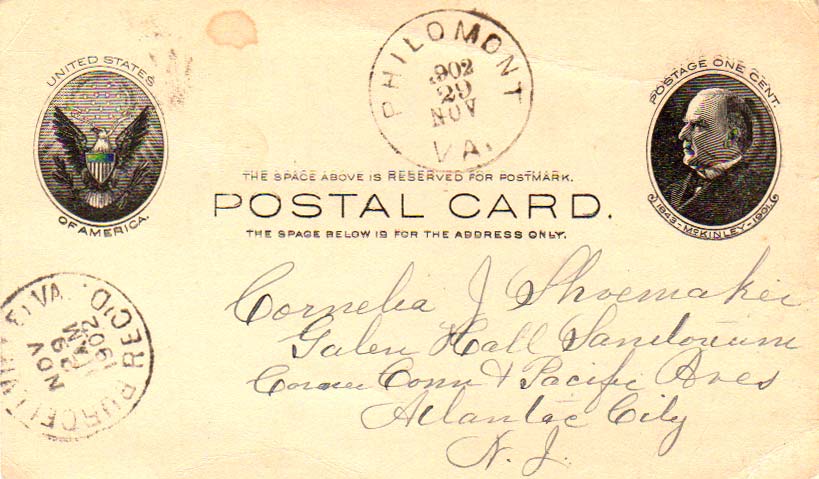 UNITED STATES
OF AMERICA.
PHILOMONT
1902
29
NOV
VA.
POSTAGE ONE CENT.
1843-McKINLEY-1901.
THE SPACE ABOVE IS RESERVED FOR POSTMARK.
POSTAL CARD.
THE SPACE BELOW IS FOR THE ADDRESS ONLY.
PURCELLVILLE VA.
REC'D.
NOV
29
1902
Cornelia J Shoemaker
Galen Hall Sanitorium
Corner Conn & Pacific Aves
Atlantic City
N. J.